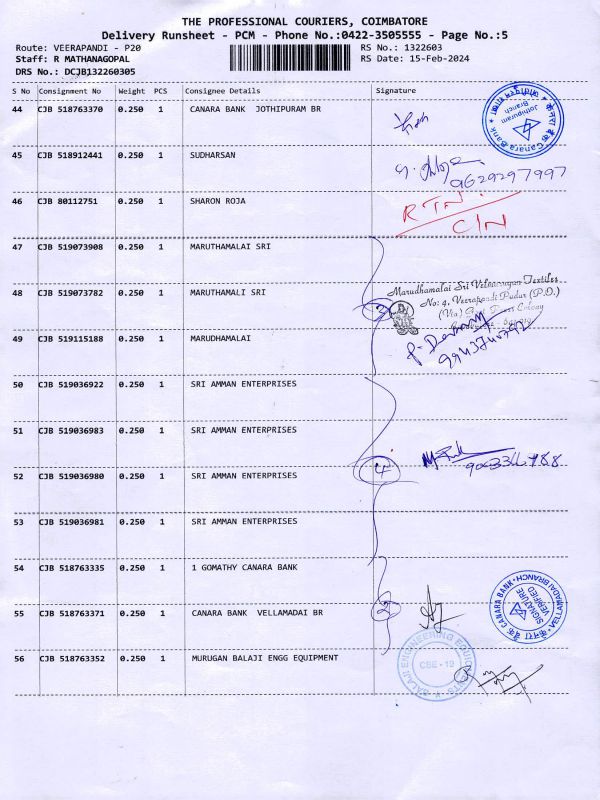 THE PROFESSIONAL COURIERS, COIMBATORE
Delivery Runsheet - PCM - Phone No.:0422-3505555 - Page No.:5
Route: VEERAPANDI - P20
RS No.: 1322603
Staff: R MATHANAGOPAL
RS Date: 15-Feb-2024
DRS No.: DCJB132260305
S No Consignment No Weight PCS Consignee Details Signature
44 CJB 518763370 0.250 1 CANARA BANK JOTHIPURAM BR
Jothipuram Branch
Canara Bank
45 CJB 518912441 0.250 1 SUDHARSAN
9629297997
46 CJB 80112751 0.250 1 SHARON ROJA
RTN
C/N
47 CJB 519073908 0.250 1 MARUTHAMALAI SRI
48 CJB 519073782 0.250 1 MARUTHAMALI SRI
Marudhamalai Sri Velmurugan Textiles
No: 4, Veerapandi Pudur (P.O.)
(Via)
Colony
3
49 CJB 519115188 0.250 1 MARUDHAMALAI
50 CJB 519036922 0.250 1 SRI AMMAN ENTERPRISES
51 CJB 519036983 0.250 1 SRI AMMAN ENTERPRISES
52 CJB 519036980 0.250 1 SRI AMMAN ENTERPRISES
4
53 CJB 519036981 0.250 1 SRI AMMAN ENTERPRISES
54 CJB 518763335 0.250 1 1 GOMATHY CANARA BANK
55 CJB 518763371 0.250 1 CANARA BANK VELLAMADAI BR
2
CANARA BANK • VELLAMADAI BRANCH
SIGNATURE VERIFIED
56 CJB 518763352 0.250 1 MURUGAN BALAJI ENGG EQUIPMENT
BALAJI ENGINEERING EQUIPMENTS
CBE - 19